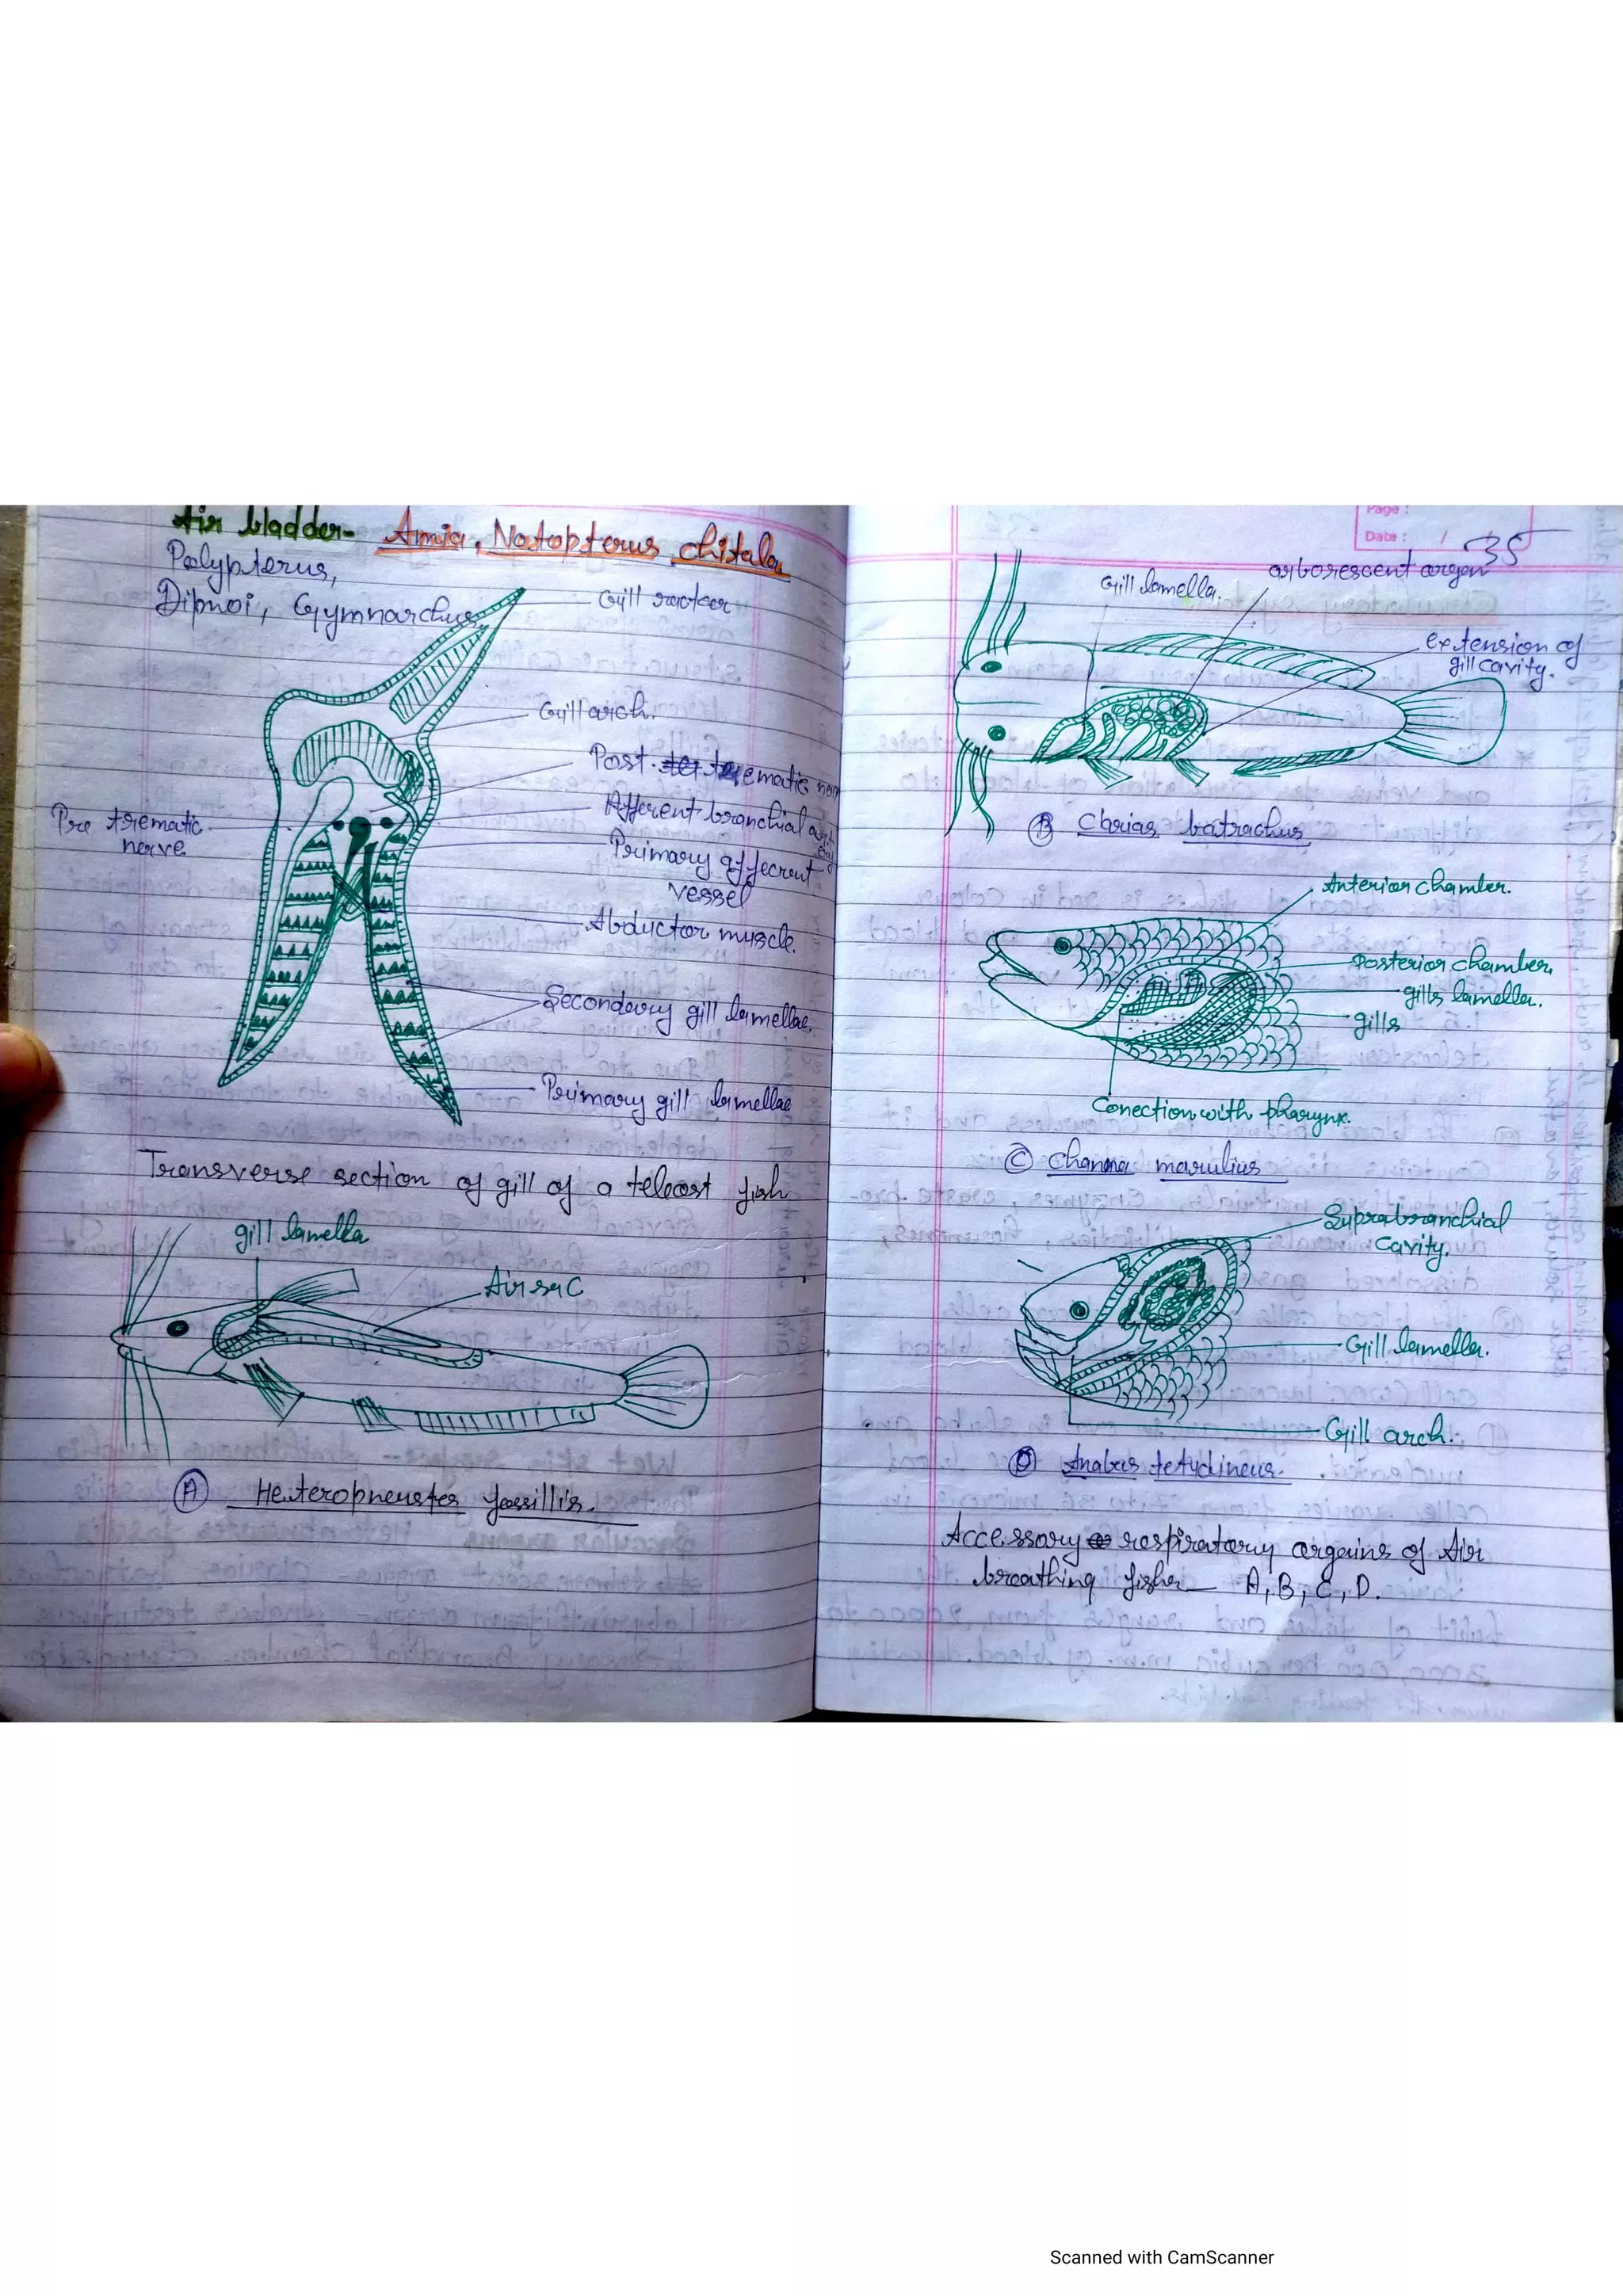 Air bladder- Amia, Notopterus chitala
Polypterus,
Dipnoi, Gymnarchus.
Gill racker
Gill arch.
Post. trematic
Pre trematic
nerve
Afferent branchial
Primary afferent
vessel
Abductor muscle.
Secondary gill lamellae.
Primary gill lamellae
Transverse section of gill of a teleost fish
gill lamella
Air sac
A Heteropneustes fossillis.
Page :
Date : /
35
Gill lamella.
arborescent organ
extension of
gill cavity.
B Clarias batrachus
Anterior chamber.
Posterior chamber.
gills lamella.
gills
Conection with pharynx.
C Channa marulius
Suprabranchial
cavity.
Gill lamella.
Gill arch.
D Anabus tetydineus.
Accessory respiratory orgains of Air
breathing fishes— A, B, C, D.
Scanned with CamScanner